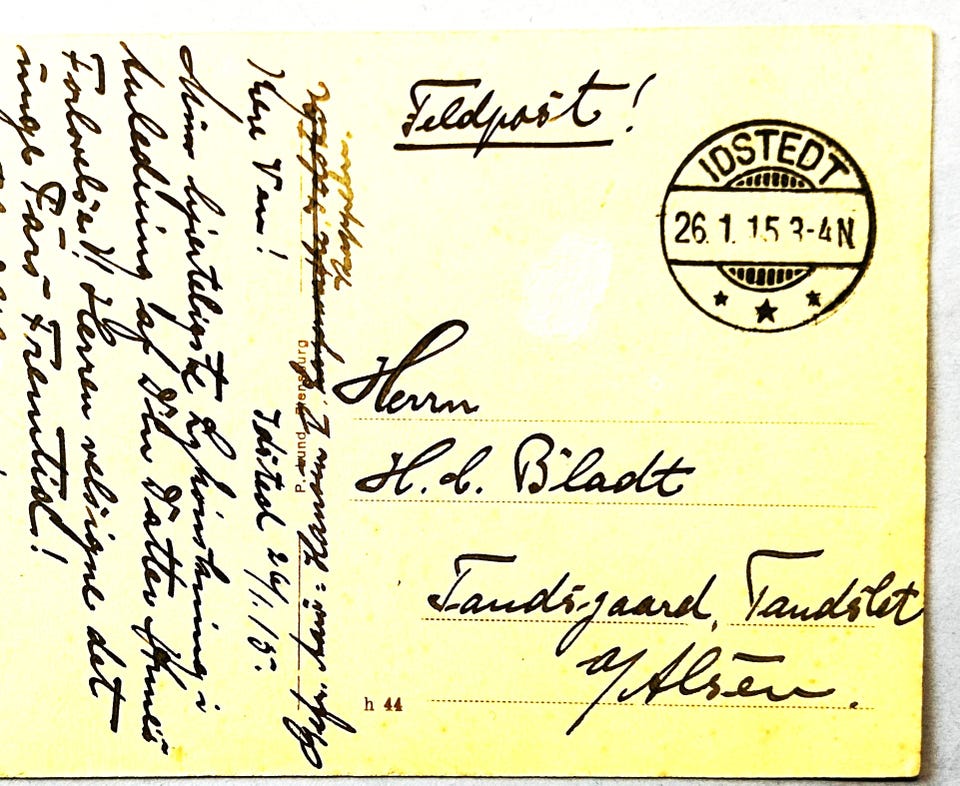 Feldpost!
IDSTEDT
26. 1. 15 3-4 N
Herrn
H. d. Bladt
Tandsgaard, Tandslet
a/Alsen.
h 44
P. und Flensburg
Kære Ven! Idsted 26/1. 15.
Min hjerteligste Lykønskning i
Anledning af Din Datter Annes
Forlovelse! Herren velsigne det
unge Pars Fremtid!